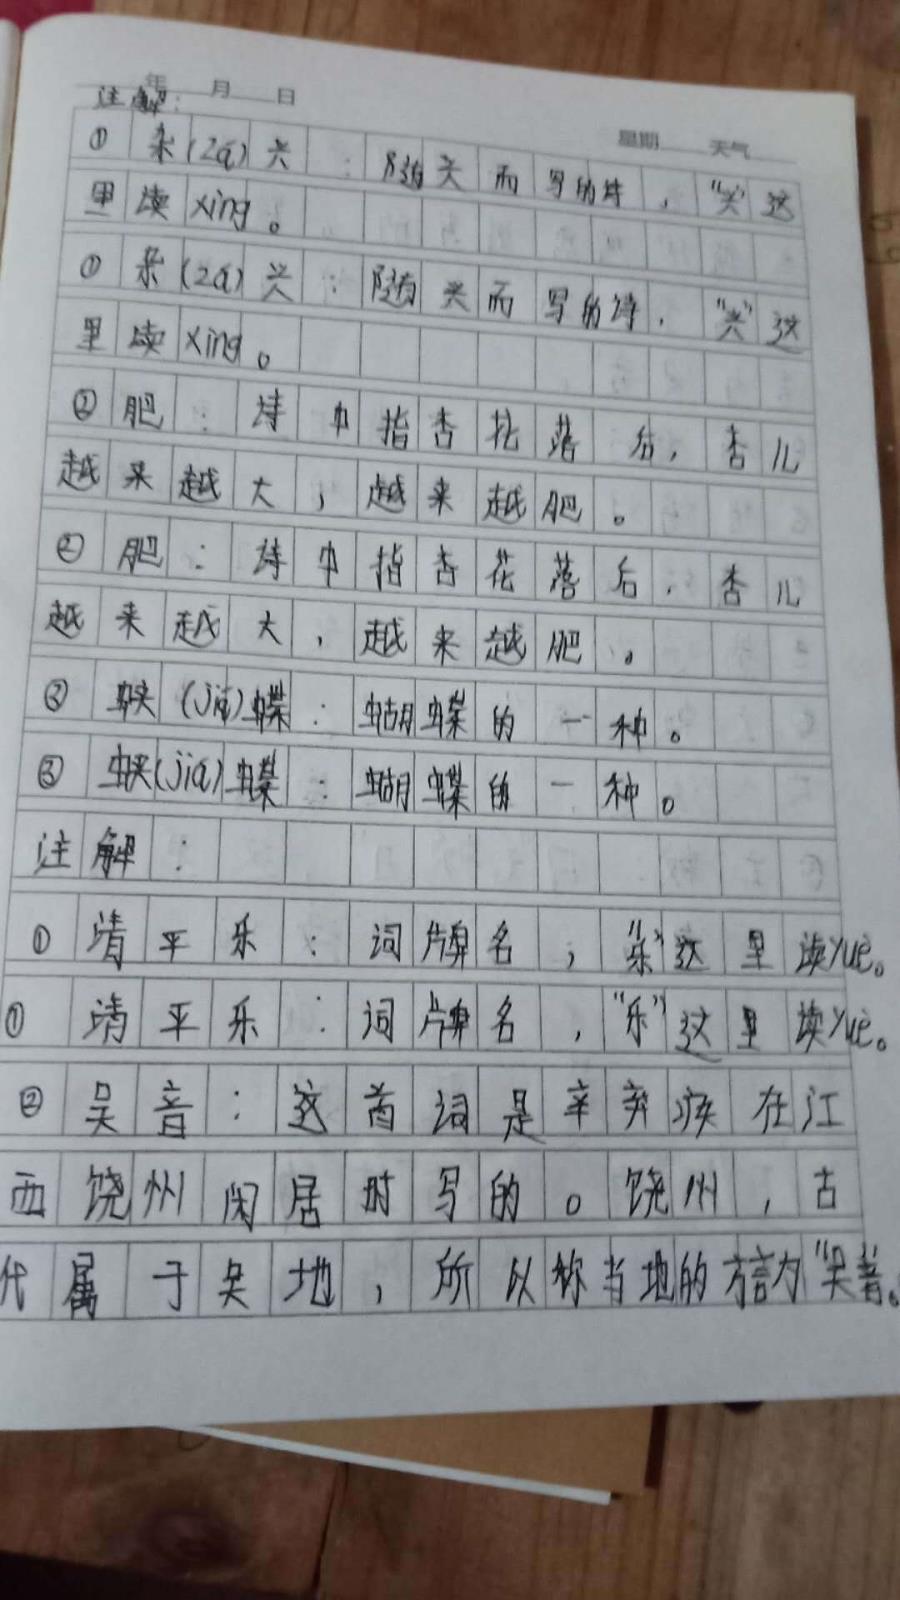 年 月 日
注解：
星期 天气
① 杂(zá)兴：随兴而写的诗，“兴”这
里读xìng。
① 杂(zá)兴：随兴而写的诗，“兴”这
里读xìng。
② 肥：诗中指杏花落后，杏儿
越来越大，越来越肥。
② 肥：诗中指杏花落后，杏儿
越来越大，越来越肥。
③ 蛱(jiá)蝶：蝴蝶的一种。
③ 蛱(jiá)蝶：蝴蝶的一种。
注解：
① 清平乐：词牌名，“乐”这里读yuè。
① 清平乐：词牌名，“乐”这里读yuè。
② 吴音：这首词是辛弃疾在江
西饶州闲居时写的。饶州，古
代属于吴地，所以称当地的方言为“吴音。